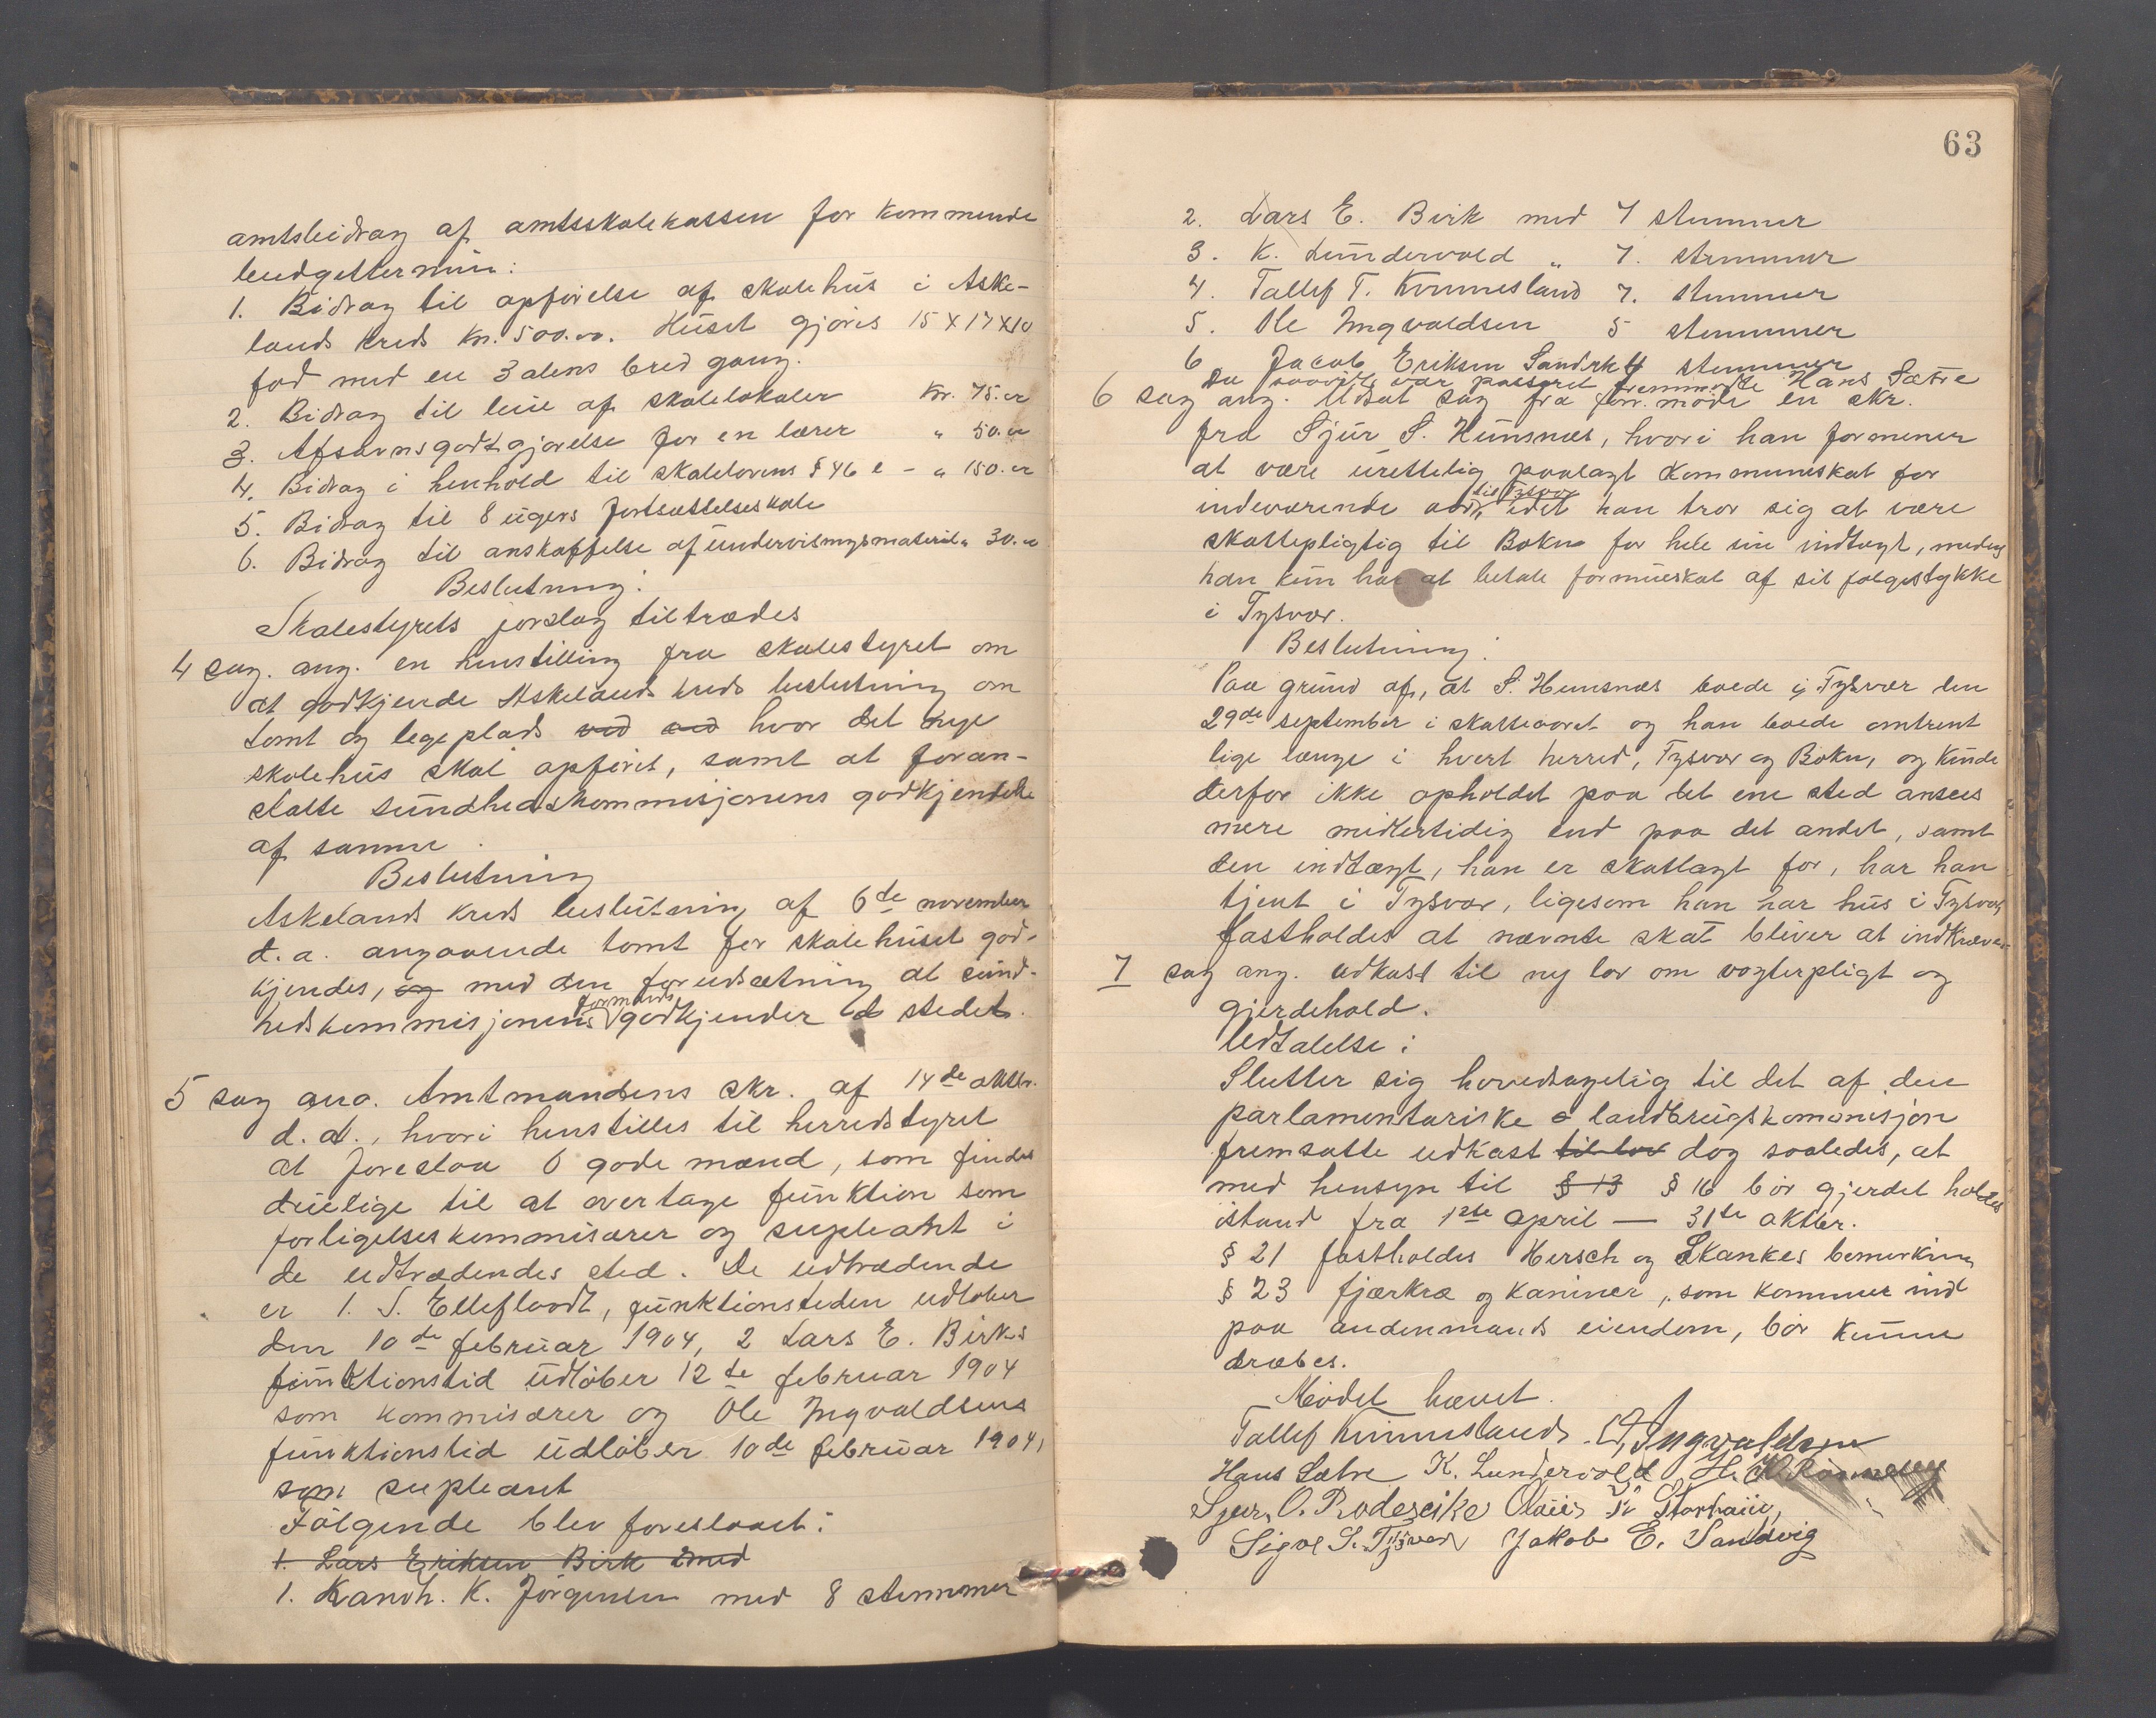 amtsbidrag af amtsskolekassen for kommende
budgettermin:
1. Bidrag til opførelse af skolehus i Aske-
lands kreds Kr. 500.00. Huset gjøres 15 X 17 X 10
fod med en 3 alens bred gang.
2. Bidrag til leie af skolelokaler Kr. 75.00
3. Afsavnsgodtgjørelse for en lærer " 50.00
4. Bidrag i henhold til skolelovens § 46 e - " 150.00
5. Bidrag til 8 ugers fortsættelseskole
6. Bidrag til anskaffelse af undervisningsmateriel " 30.00
Beslutning:
Skolestyrets forslag tiltrædes
4 sag. ang. en henstilling fra skolestyret om
at godkjende Askelands kreds beslutning om
tomt og legeplads ved ved hvor det nye
skolehus skal opføres, samt at foran-
stalte sundhedskommisjonens godkjendelse
af samme.
Beslutning
Askelands kreds beslutning af 6de november
d. a. angaaende tomt for skolehuset god-
kjendes, og med den forudsætning at sund-
hedskommisjonens formand godkjender stedet.
5 sag ang. Amtmandens skr. af 14de oktbr.
d. a., hvori henstilles til herredstyret
at foreslaa 6 gode mænd, som findes
duelige til at overtage funktion som
forligelseskommisærer og supleant i
de udtrædendes sted. De udtrædende
er 1. S. Ellefloodt, funktionstiden udløber
den 10de februar 1904, 2 Lars E. Birks
funktionstid udløber 12te februar 1904
som kommisærer og Ole Ingvaldsens
funktionstid udløber 10de februar 1904,
som supleant
Følgende blev foreslaaet:
1. Lars Eriksen Birk med
1. Kandh. K. Jørgensen med 8 stemmer
63
2. Lars E. Birk med 7 stemmer
3. K. Lundervold " 7. stemmer
4. Tallef T. Kvinnesland 7. stemmer
5. Ole Ingvaldsen 5 stemmer
6 Jacob Eriksen Sandvik 4 stemmer
Da saavidt var passeret fremmødte Hans Sætre
6 sag ang. Udsat sag fra forr. møde en skr.
fra Sjur S. Hunsnæs, hvori han formener
at være urettelig paalagt kommuneskat for
indeværende aar, til Tysvær idet han tror sig at være
skattepligtig til Bokn for hele sin indtægt, medens
han kun har at betale formueskat af sit følgestykke
i Tysvær.
Beslutning:
Paa grund af, at S. Hunsnæs boede i Tysvær den
29de september i skatteaaret og han boede omtrent
lige længe i hvert herred, Tysvær og Bokn, og kunde
derfor ikke opholdet paa det ene sted ansees
mere midlertidig end paa det andet, samt
den indtægt, han er skatlagt for, har han
tjent i Tysvær, ligesom han har hus i Tysvær,
fastholdes at nævnte skat bliver at indkræves.
7 sag ang. udkast til ny lov om vogterpligt og
gjerdehold.
Udtalelse:
Slutter sig hovedsagelig til det af den
parlamentariske landbrugskommisjon
fremsatte udkast til lov dog saaledes, at
med hensyn til § 13 § 16 bør gjerdet holdes
istand fra 1ste april — 31te oktbr.
§ 21 fastholdes Hersch og Skankes bemerkning
§ 23 fjærkræ og kaniner, som kommer ind
paa andenmands eiendom, bør kunne
dræbes.
Mødet hævet.
Tallef Kvinnesland. O. Ingvaldsen
Hans Sætre K. Lundervold
Sjur O. Jakob E. Sandvig
Sigve S. Tysvær